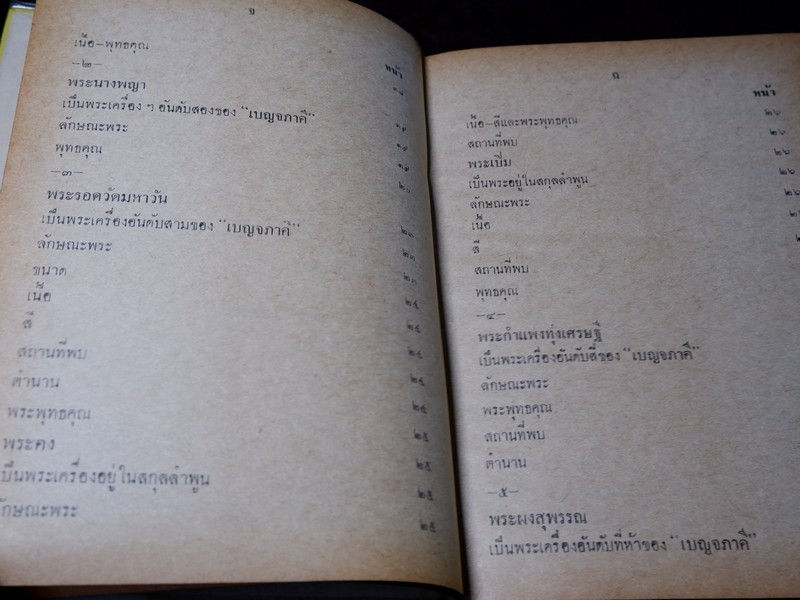 จ
หน้า
เนื้อ–พุทธคุณ
–๒–
พระนางพญา
เป็นพระเครื่อง ฯ อันดับสองของ “เบญจภาคี”
ลักษณะพระ
พุทธคุณ
–๓–
พระรอดวัดมหาวัน
เป็นพระเครื่องอันดับสามของ “เบญจภาคี”
ลักษณะพระ
ขนาด
เนื้อ
สี
สถานที่พบ
ตำนาน
พระพุทธคุณ
พระคง
เป็นพระเครื่องอยู่ในสกุลลำพูน
ลักษณะพระ
ฉ
หน้า
เนื้อ–สีและพระพุทธคุณ ๒๖
สถานที่พบ ๒๖
พระเปิ่ม ๒๖
เป็นพระอยู่ในสกุลลำพูน ๒๖
ลักษณะพระ
เนื้อ
สี
สถานที่พบ
พุทธคุณ
–๔–
พระกำแพงทุ่งเศรษฐี
เป็นพระเครื่องอันดับสี่ของ “เบญจภาคี”
ลักษณะพระ
พระพุทธคุณ
สถานที่พบ
ตำนาน
–๕–
พระผงสุพรรณ
เป็นพระเครื่องอันดับที่ห้าของ “เบญจภาคี”